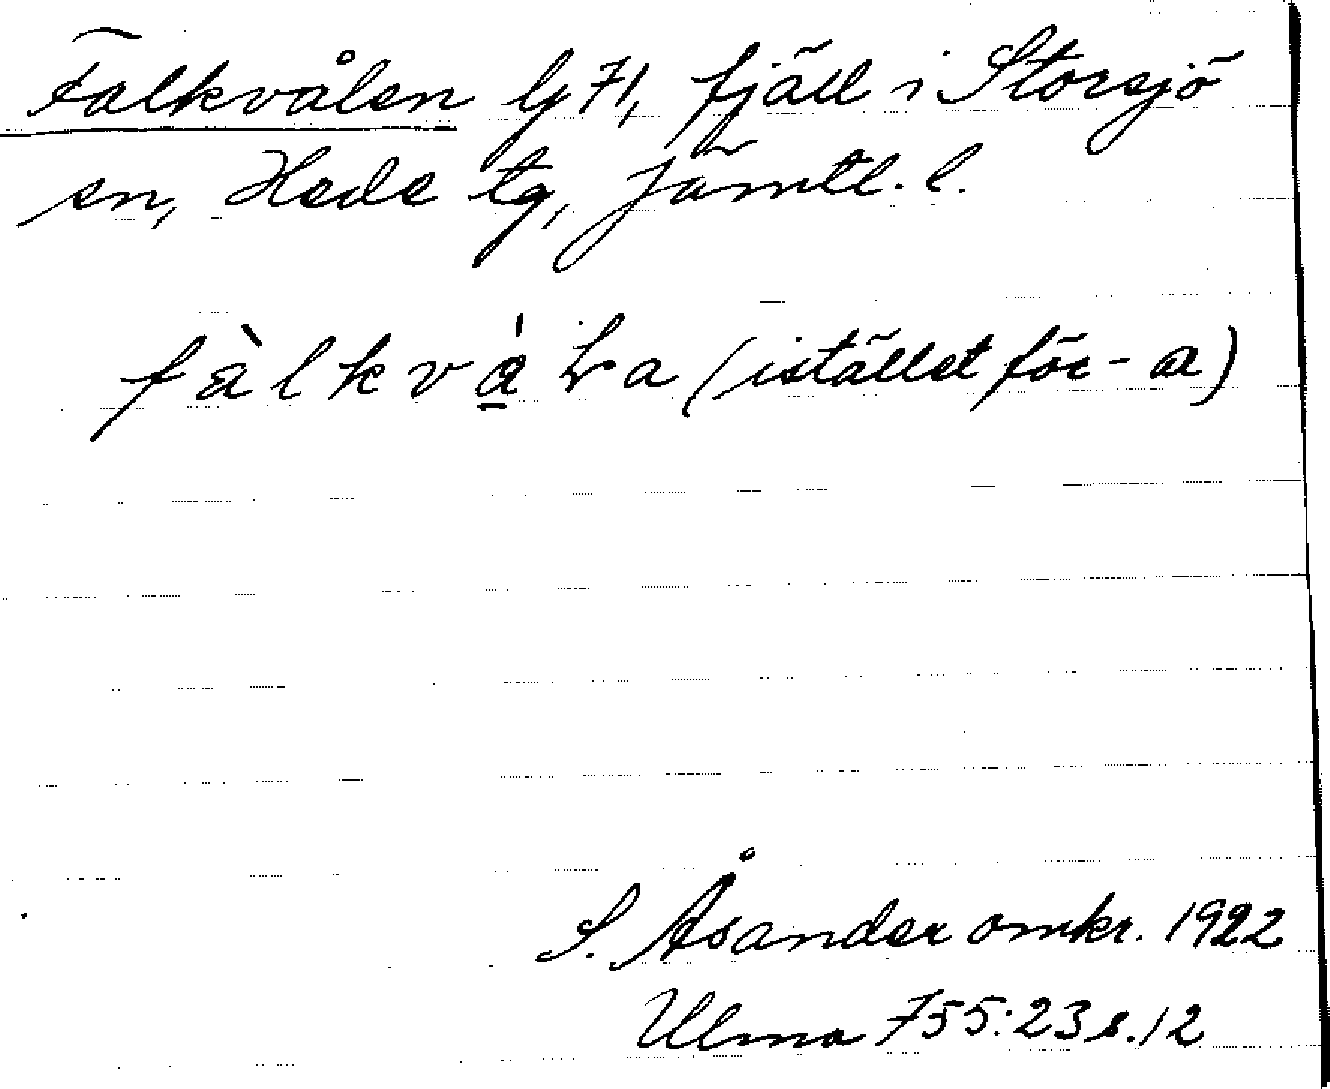 Falkvålen G 71, fjäll i Storsjö
sn, Hede tg, Jämtl. l.
fàlkvå̀La (istället för -æ)
S. Åsander omkr. 1922
Ulma 755:23 s. 12